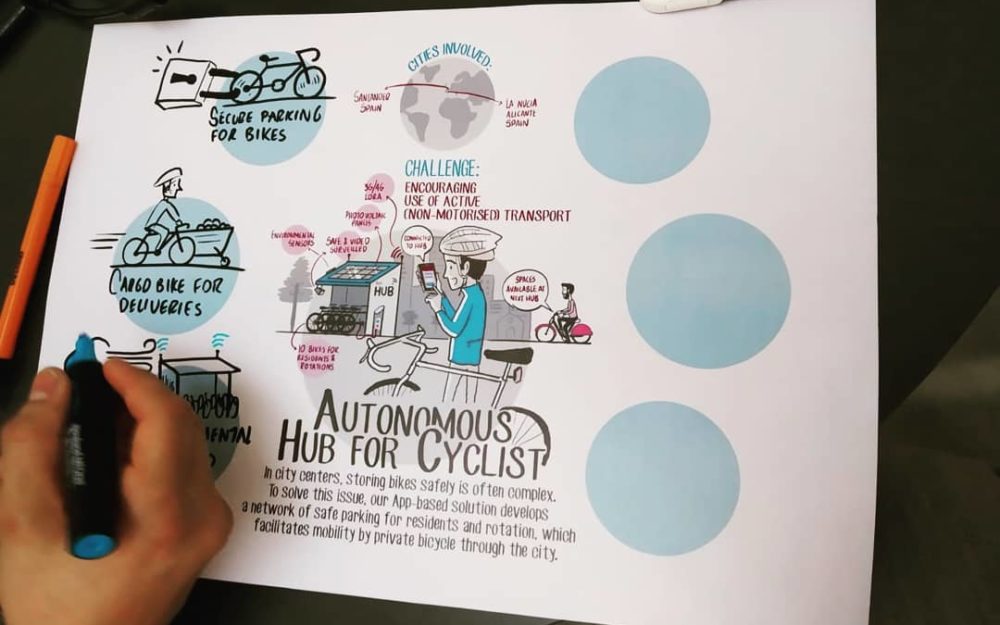 SECURE PARKING
FOR BIKES
CARGO BIKE FOR
DELIVERIES
MENTAL
CITIES INVOLVED:
SANTANDER
SPAIN
LA NUCIA
ALICANTE
SPAIN
CHALLENGE:
ENCOURAGING
USE OF ACTIVE
(NON-MOTORISED) TRANSPORT
3G/4G
LORA
PHOTOVOLTAIC
PANELS
ENVIRONMENTAL
SENSORS
SAFE & VIDEO
SURVEILLED
CONNECTED
TO HUB
HUB
SPACES
AVAILABLE AT
NEXT HUB
10 BIKES FOR
RESIDENTS &
ROTATIONS
AUTONOMOUS
HUB FOR CYCLIST
In city centers, storing bikes safely is often complex.
To solve this issue, our App-based solution develops
a network of safe parking for residents and rotation, which
facilitates mobility by private bicycle through the city.